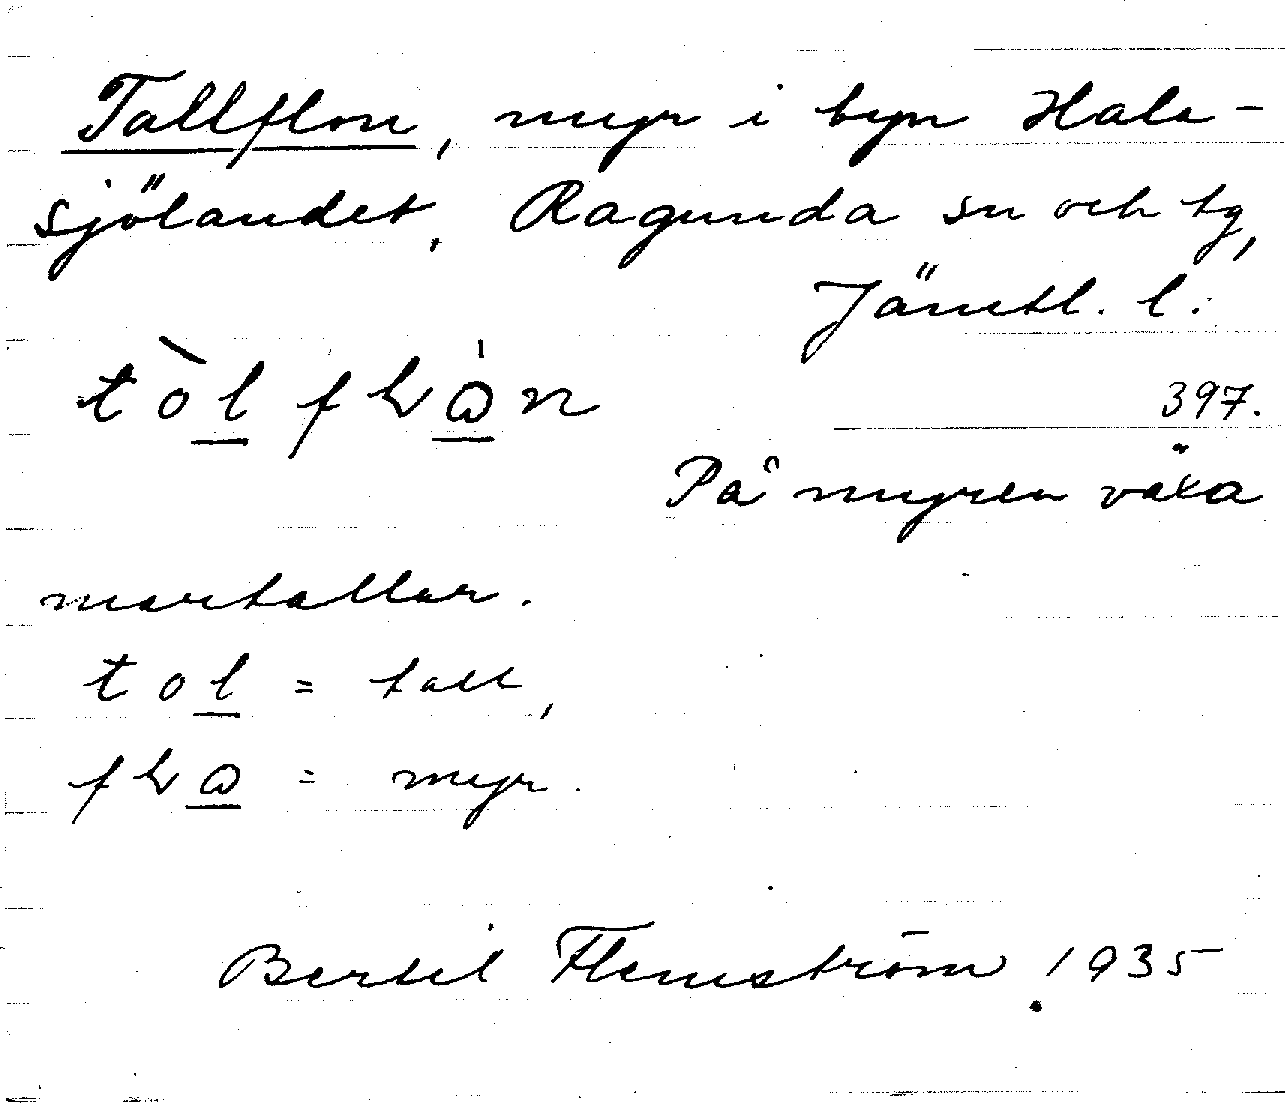 Tallflon, myr i byn Hala-
sjölandet, Ragunda sn och tg,
Jämtl. l.
397.
På myren växa
martallar.
tol = tall,
= myr.
Bertil Flemström 1935